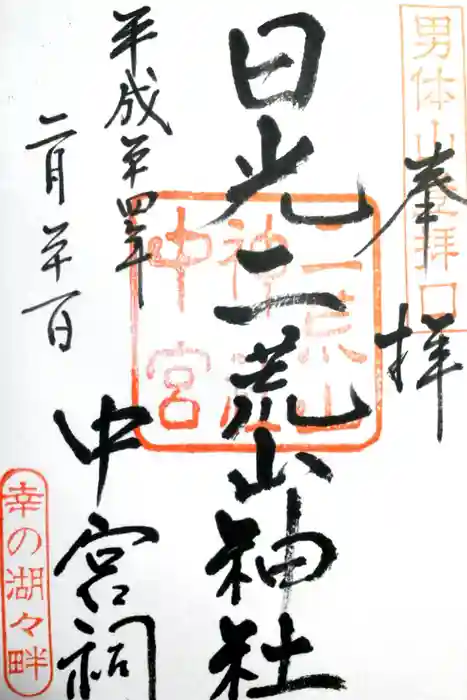 男体山登拝口
奉拝
日光二荒山神社
中宮祠
二荒山
神社
中宮
平成廿四年
二月廿一日
幸の湖々畔